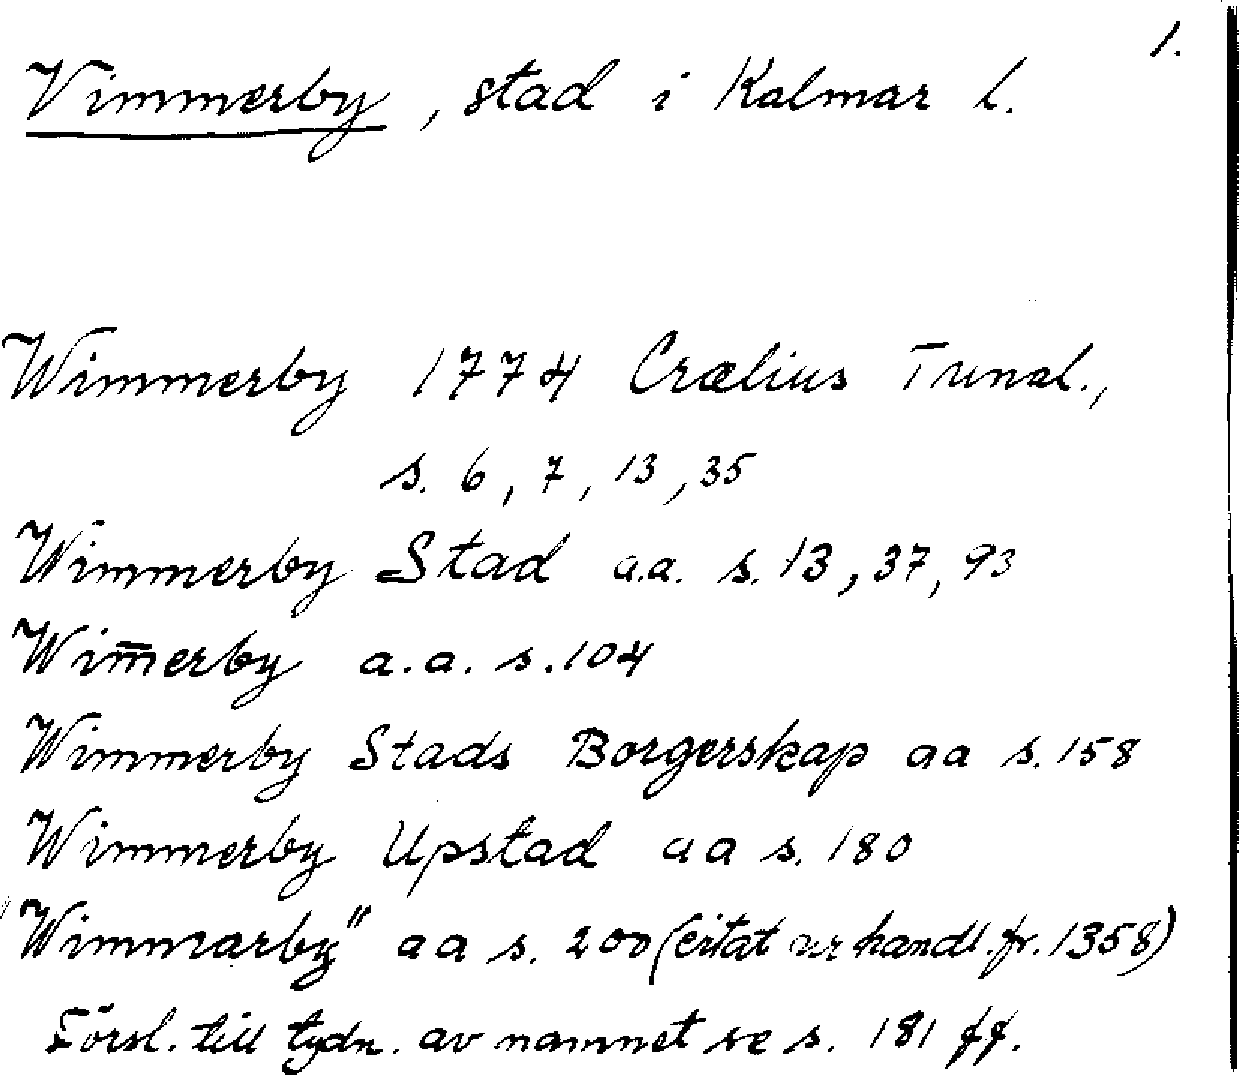 1.
Vimmerby, stad i Kalmar l.
Wimmerby 1774 Crælius Tunal.,
s. 6, 7, 13, 35
Wimmerby Stad a.a. s. 13, 37, 93
Wim̅erby a.a. s. 104
Wimmerby Stads Borgerskap aa s. 158
Wimmerby Upstad aa s. 180
"Wimmarby" aa s. 200 (citat ur handl. fr. 1358)
Försl. till tydn. av namnet se s. 181 ff.